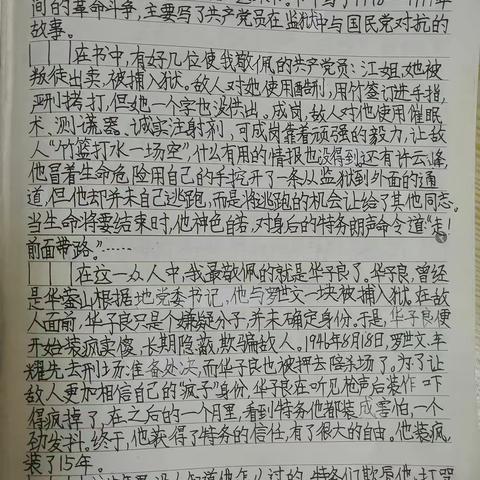 间的革命斗争,主要写了共产党员在监狱中与国民党对抗的
故事。
在书中,有好几位使我敬佩的共产党员:江姐,她被
叛徒出卖,被捕入狱。敌人对她使用酷刑,用竹签订进手指,
严刑拷打,但她一个字也没供出。成岗,敌人对他使用催眠
术、测谎器、诚实注射剂,可成岗靠着顽强的毅力,让敌
人“竹篮打水一场空”,什么有用的情报也没得到还有许云峰,
他冒着生命危险用自己的手挖开了一条从监狱到外面的通
道,但他却并未自己逃跑,而是将逃跑的机会让给了其他同志。
当生命将要结束时,他神色自若,对身后的特务朗声命令道:“走!
前面带路。”……
在这一众人中,我最敬佩的就是华子良了。华子良,曾经
是华蓥山根据地党委书记,他与罗世文一块被捕入狱。在敌
人面前,华子良只是个嫌疑分子,并未确定身份。于是,华子良便
开始装疯卖傻,长期隐蔽,欺骗敌人。1946年8月18日,罗世文、车
耀先去刑场准备处决,而华子良也被押去陪杀场了。为了让
敌人更加相信自己的“疯子”身份,华子良在听见枪声后装作吓
得疯掉了,在之后的一个月里,看到特务他都装成害怕,一个
劲发抖。终于,他获得了特务的信任,有了很大的自由。他装疯,
装了15年。